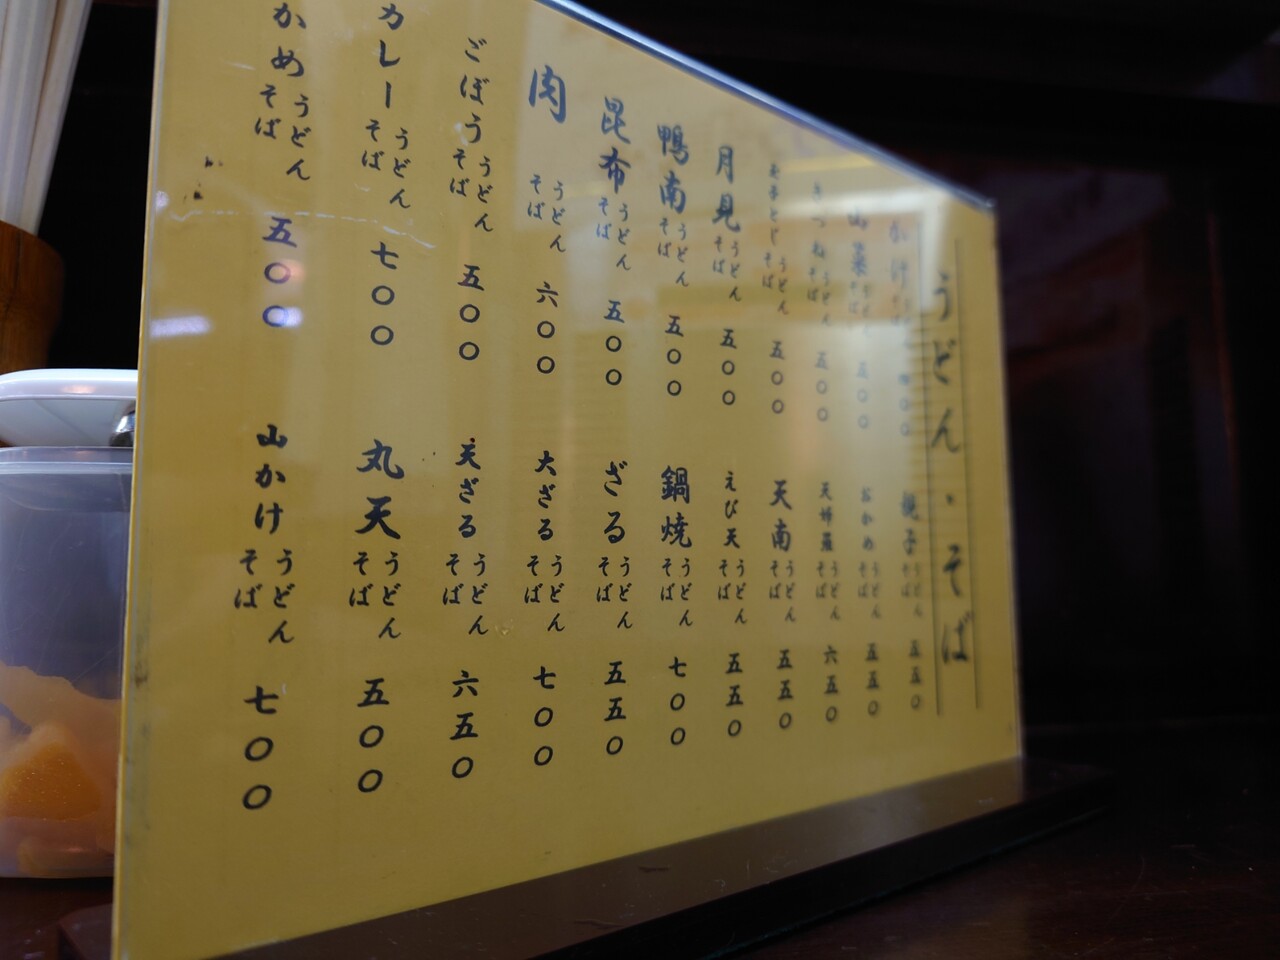 うどん、そば
かけ うどん そば 四〇〇
山菜 うどん そば 五〇〇
きつね うどん そば 五〇〇
玉子とじ うどん そば 五〇〇
月見 うどん そば 五〇〇
鴨南 うどん そば 五〇〇
昆布 うどん そば 五〇〇
肉 うどん そば 六〇〇
ごぼう うどん そば 五〇〇
カレー うどん そば 七〇〇
かめ うどん そば 五〇〇
うどん そば 五五〇
おかめ うどん そば 五五〇
天婦羅 うどん そば 六五〇
天南 うどん そば 五五〇
えび天 うどん そば 五五〇
鍋焼 うどん そば 七〇〇
ざる うどん そば 五五〇
大ざる うどん そば 七〇〇
天ざる うどん そば 六五〇
丸天 うどん そば 五〇〇
山かけ うどん そば 七〇〇